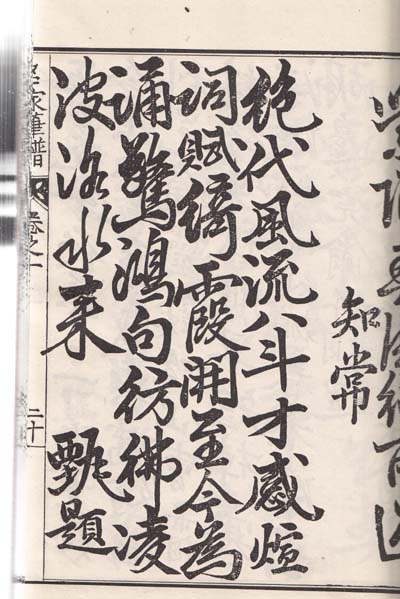 知常
絕代風流八斗才感煊
詞賦綺霞開至今為
誦驚鴻句彷彿凌
波洛水來 甄題
家筆譜 卷之一 二十